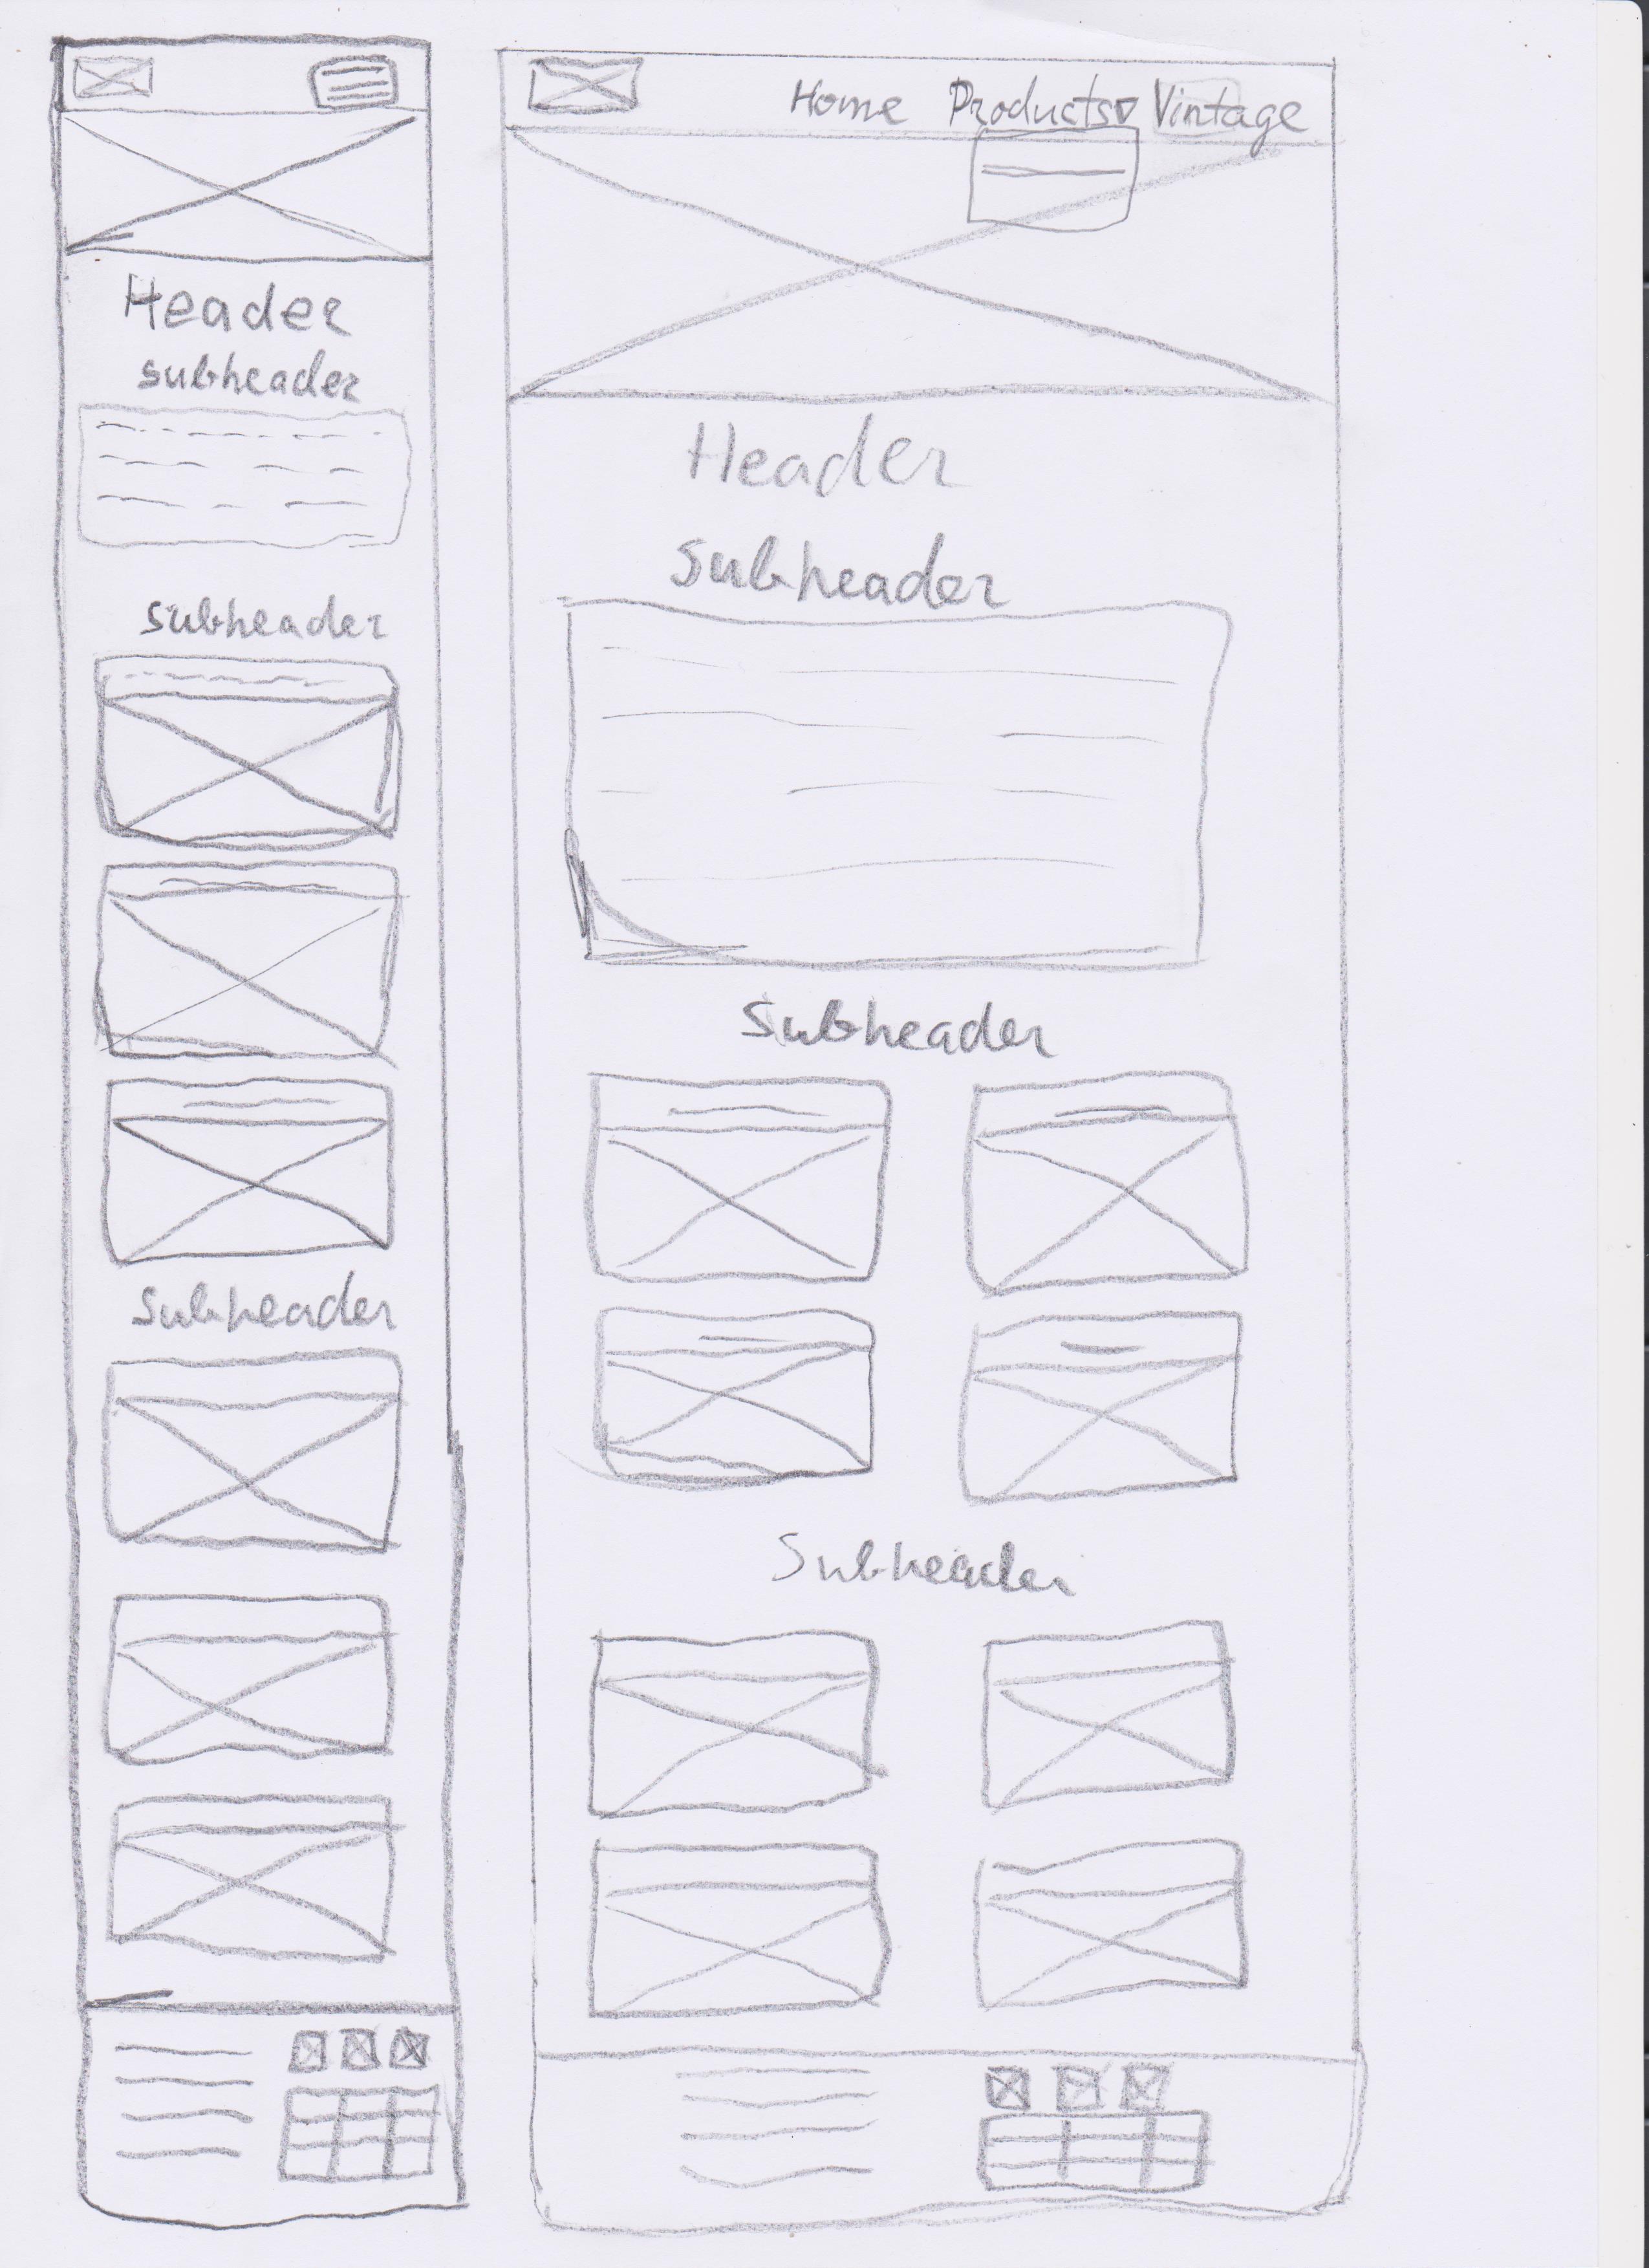 Header
subheader
subheader
Subheader
Home Products Vintage
Header
Subheader
Subheader
Subheader